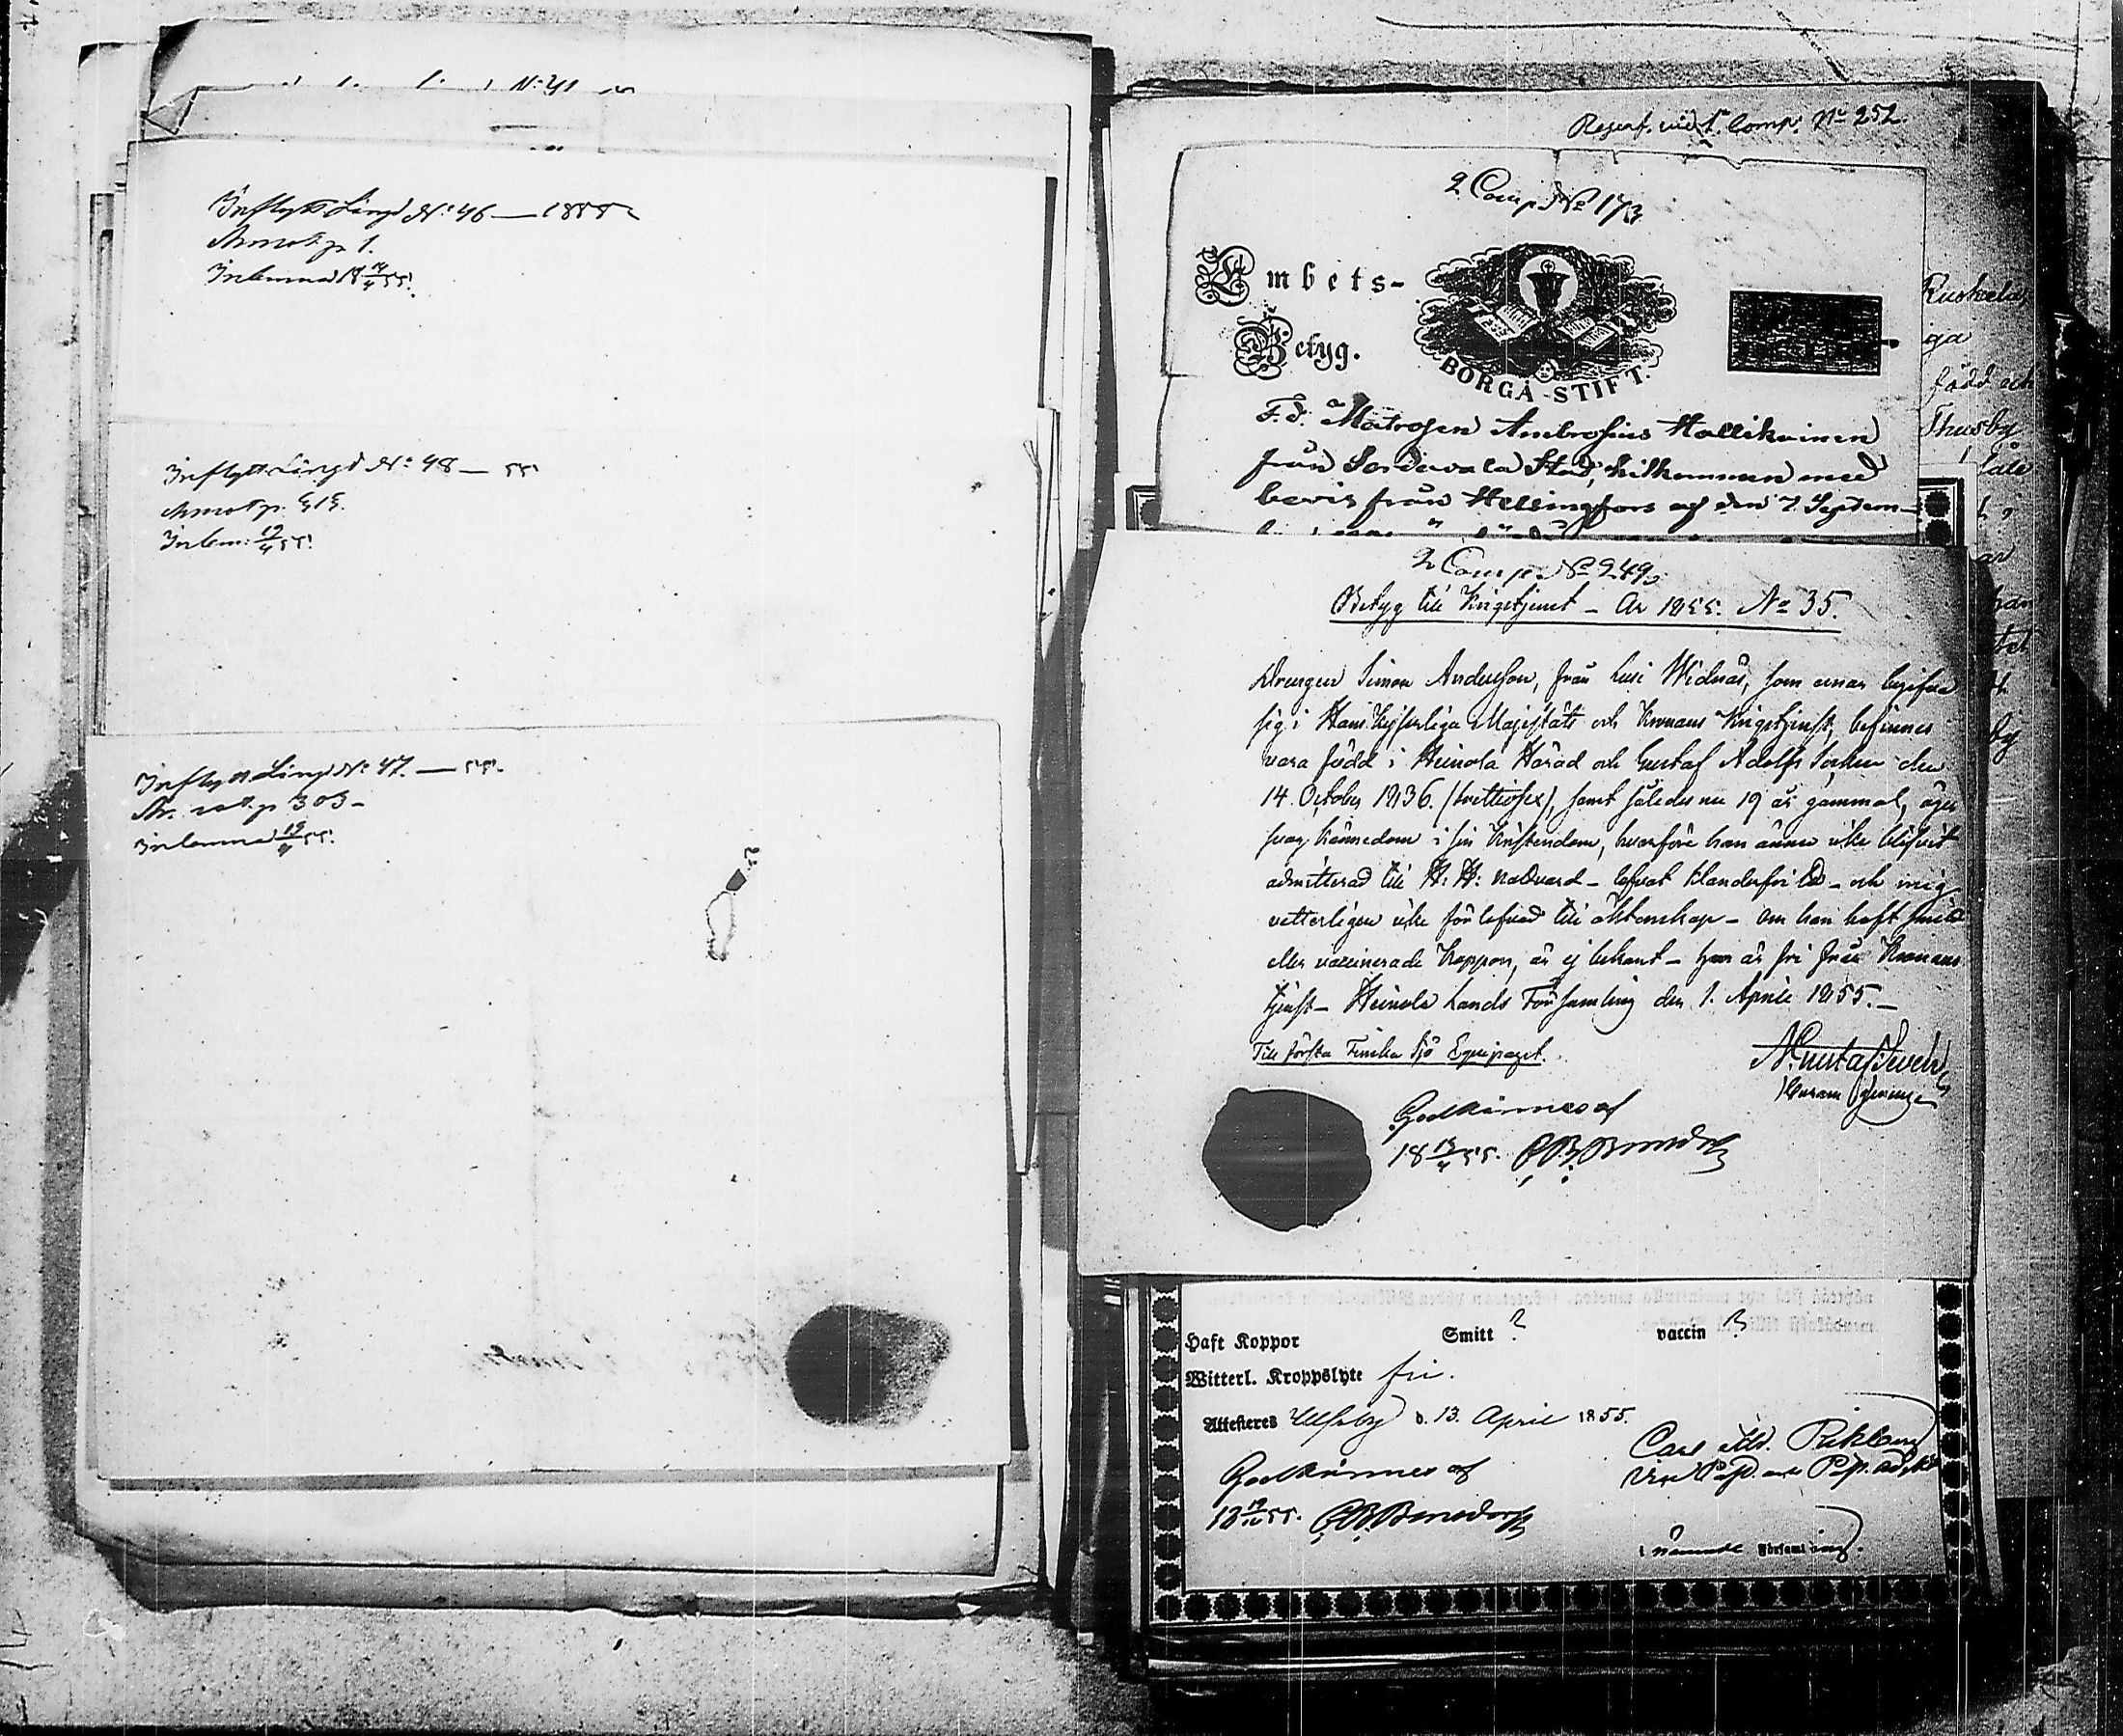 N:o 41
Inflytt Längd N:o 46 — 1855
Annot. p. 1.
Inlemnad 18 19/4 55.
Inflytt Längd N:o 48 — 55
Annot p. 515.
Inlem: 19/4 55.
Inflytt Längd N:o 47. — 55.
An. not. p 303 -
Inlemnad 19/4 55.
Reserf. vid 1. Comp. No 252.
2 Comp No 173
Embets-
Betyg.
BORGÅ-STIFT.
F.d. Matrosen Ambrosius Hallikainen
från Sordavala Stad, hitkommen med
bevis från Helsingfors af den 7 Septem-
Ruskela
iga
född och
Thusby
2 Comp. No 249.
Betyg till Krigstjenst - År 1855. No 35.
Drengen Simon Andersson, från Lusi Widnäs, som ernar begifva
sig i Hans Kejserliga Majestäts och Kronans Krigstjenst, befinnes
vara född i Heinola Härad och Gustaf Adolfs Socken den
14 October 1836. (trettiosex), samt således nu 19 år gammal, äger
svag kännedom i sin Kristendom, hvarföre han ännu icke blifvit
admitterad till H. H: Nattvard - lefvat klanderfri - och mig
vetterligen icke förlofvad till äktenskap - om han haft smitt
eller vaccinerade koppor, är ej bekant - han är fri från Kronans
tjenst - Heinola Lands Församling den 1. April 1855. -
Till första Finska Sjö Equipaget.
Godkännes af
18 19/4 55.
Haft Koppor Smitt ? vaccin ?
Witterl. Kroppslyte fri.
Attesteres Ulfsby d. 13. April 1855.
Carl
Godkännes af
18 19/4 55.
i nämnde Församling.